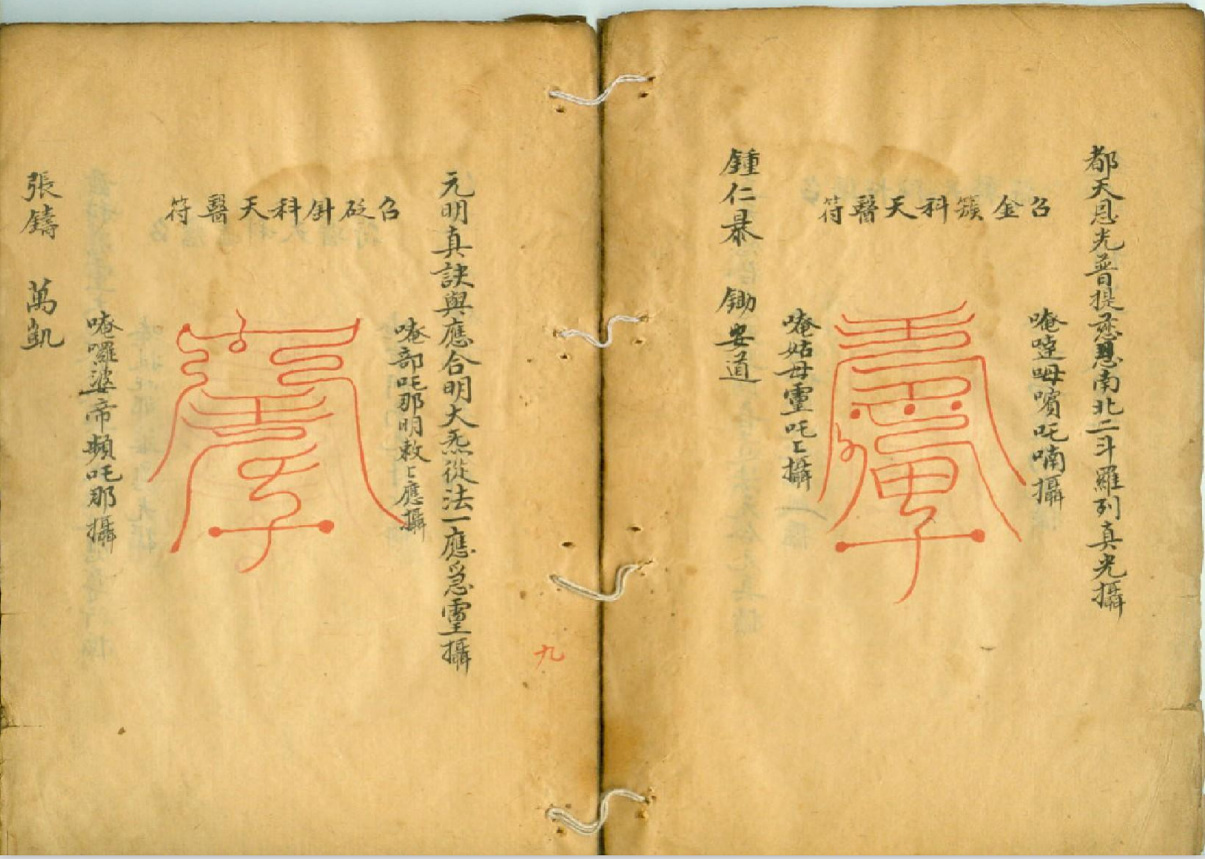 都天恩光普提慈恩南北二斗羅列真光攝
召金簇科天醫符
唵噠呣嚬吒喃攝
唵姑母靈吒〻攝
鍾仁暴 鋤安道
元明真訣與應合明大炁從法一應急靈攝
召砭針科天醫符
唵部吒那明敕〻應攝
唵囉婆帝頻吒那攝
張鑄 萬凱
九